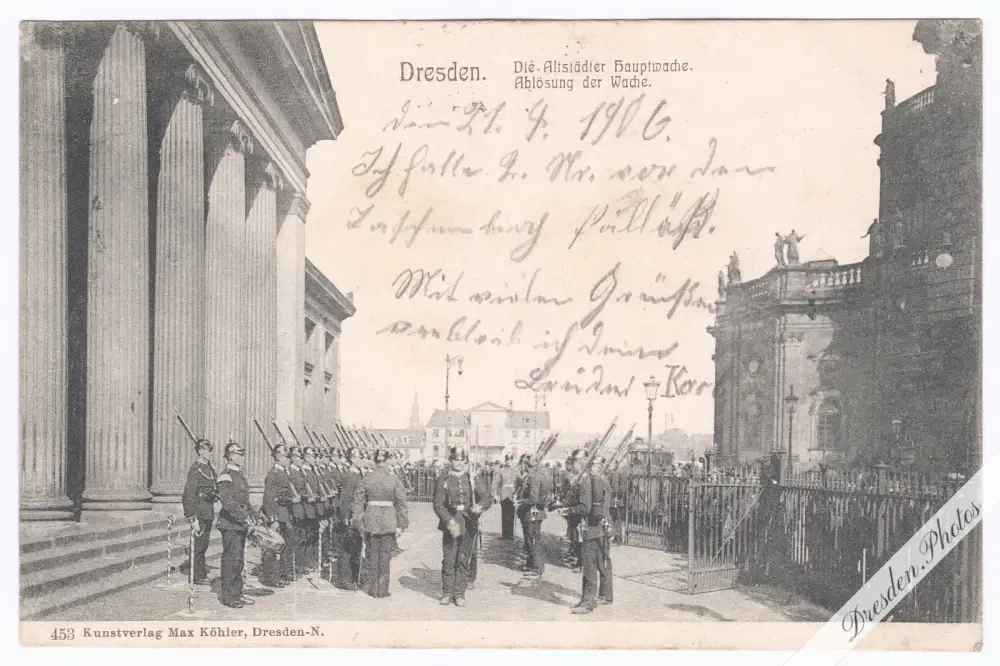 Dresden.
Die Altstädter Hauptwache.
Ablösung der Wache.
Den 21. 4. 1906.
Ich halte 2. Nr. vor dem
Taschenbuch
Mit vielen Grüßen
verbleib ich deine
Bruder
453 Kunstverlag Max Köhler, Dresden-N.
Dresden.Photos